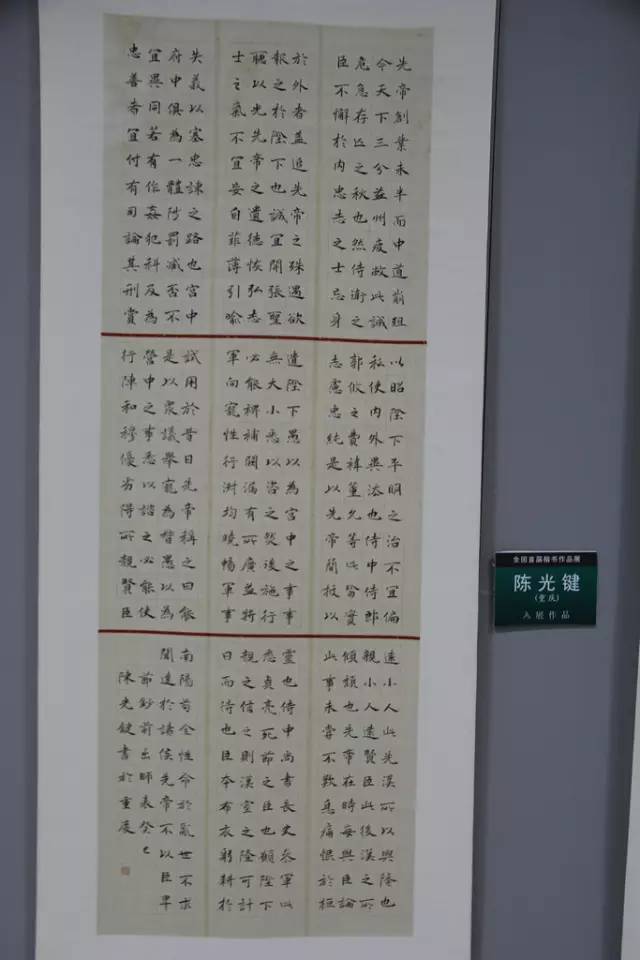 先帝創業未半而中道崩殂
今天下三分益州疲敝此誠
危急存亡之秋也然侍衛之
臣不懈於內忠志之士忘身
於外者蓋追先帝之殊遇欲
報之於陛下也誠宜開張聖
聽以光先帝之遺德恢弘志
士之氣不宜妄自菲薄引喻
失義以塞忠諫之路也宮中
府中俱為一體陟罰臧否不
宜異同若有作姦犯科及為
忠善者宜付有司論其刑賞
以昭陛下平明之治不宜偏
私使內外異法也侍中侍郎
郭攸之費禕董允等此皆實
志慮忠純是以先帝簡拔以
遺陛下愚以為宮中之事事
無大小悉以咨之然後施行
必能裨補闕漏有所廣益將
軍向寵性行淑均曉暢軍事
試用於昔日先帝稱之曰能
是以衆議舉寵為督愚以為
營中之事悉以諮之必能使
行陣和穆優劣得所親賢臣
遠小人此先漢所以興隆也
親小人遠賢臣此後漢之所
傾頹也先帝在時每與臣論
此事未嘗不歎息痛恨於桓
靈也侍中尚書長史參軍此
悉貞亮死節之臣也願陛下
親之信之則漢室之隆可計
日而待也臣本布衣躬耕於
南陽苟全性命於亂世不求
聞達於諸侯先帝不以臣卑
節鈔前出師表癸巳
陳光鍵書於重慶
全国首届楷书作品展
陈光键
(重庆)
入展作品